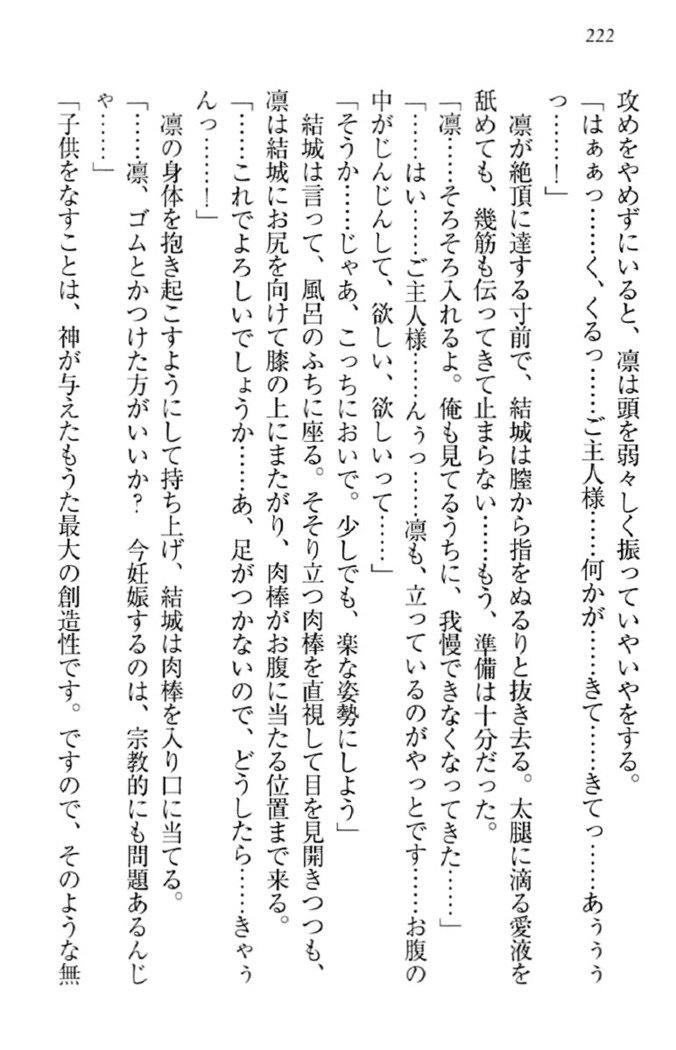 222
攻めをやめずにいると、凛は頭を弱々しく振っていやいやをする。
「はぁぁっ……く、くるっ……ご主人様……何かが……きて……きてっ……あぅぅぅ
っ……！」
　凛が絶頂に達する寸前で、結城は膣から指をぬるりと抜き去る。太腿に滴る愛液を
舐めても、幾筋も伝ってきて止まらない……もう、準備は十分だった。
「凛……そろそろ入れるよ。俺も見てるうちに、我慢できなくなってきた……」
「……はい……ご主人様……んぅっ……凛も、立っているのがやっとです……お腹の
中がじんじんして、欲しい、欲しいって……」
「そうか……じゃあ、こっちにおいで。少しでも、楽な姿勢にしよう」
　結城は言って、風呂のふちに座る。そそり立つ肉棒を直視して目を見開きつつも、
凛は結城にお尻を向けて膝の上にまたがり、肉棒がお腹に当たる位置まで来る。
「……これでよろしいでしょうか……あ、足がつかないので、どうしたら……きゃぅ
んっ……！」
　凛の身体を抱き起こすようにして持ち上げ、結城は肉棒を入り口に当てる。
「……凛、ゴムとかつけた方がいいか？　今妊娠するのは、宗教的にも問題あるんじ
ゃ……」
「子供をなすことは、神が与えたもうた最大の創造性です。ですので、そのような無